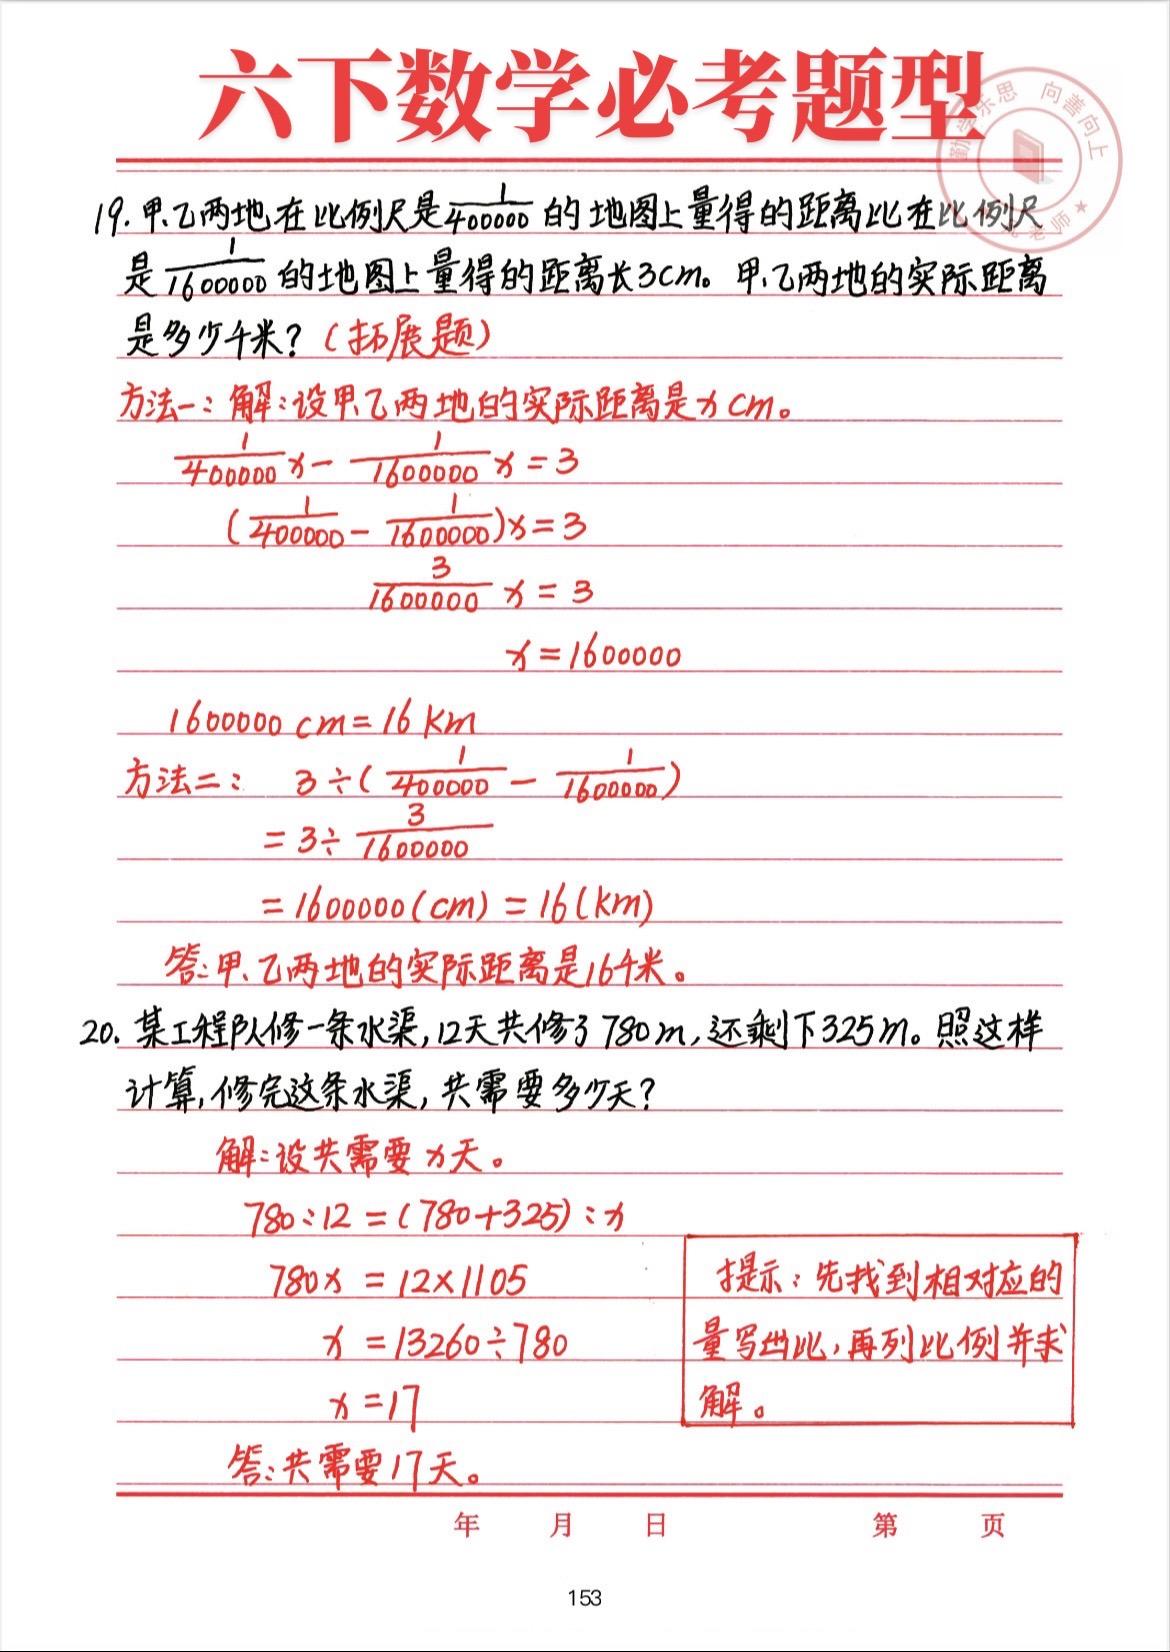 六下数学必考题型
勤学乐思 向善向上
老师★
19. 甲、乙两地,在比例尺是1/400000的地图上量得的距离比在比例尺
是1/1600000的地图上量得的距离长3cm。甲、乙两地的实际距离
是多少千米?(拓展题)
方法一:解:设甲、乙两地的实际距离是x cm。
1/400000 x - 1/1600000 x = 3
(1/400000 - 1/1600000)x = 3
3/1600000 x = 3
x = 1600000
1600000 cm = 16 km
方法二: 3÷(1/400000 - 1/1600000)
= 3÷ 3/1600000
= 1600000(cm) = 16(km)
答:甲、乙两地的实际距离是16千米。
20. 某工程队修一条水渠,12天共修了780m,还剩下325m。照这样
计算,修完这条水渠,共需要多少天?
解:设共需要x天。
780:12 = (780+325):x
780x = 12×1105
x = 13260÷780
x = 17
答:共需要17天。
提示:先找到相对应的
量写出比,再列比例并求
解。
年 月 日 第 页
153